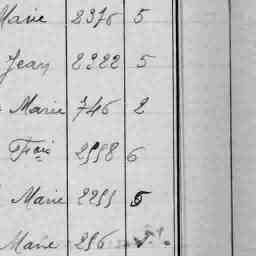 Marie 2376 5
Jean 2322 5
Marie 746 2
Fçois 2558 6
Marie 2255 5
Marie 256